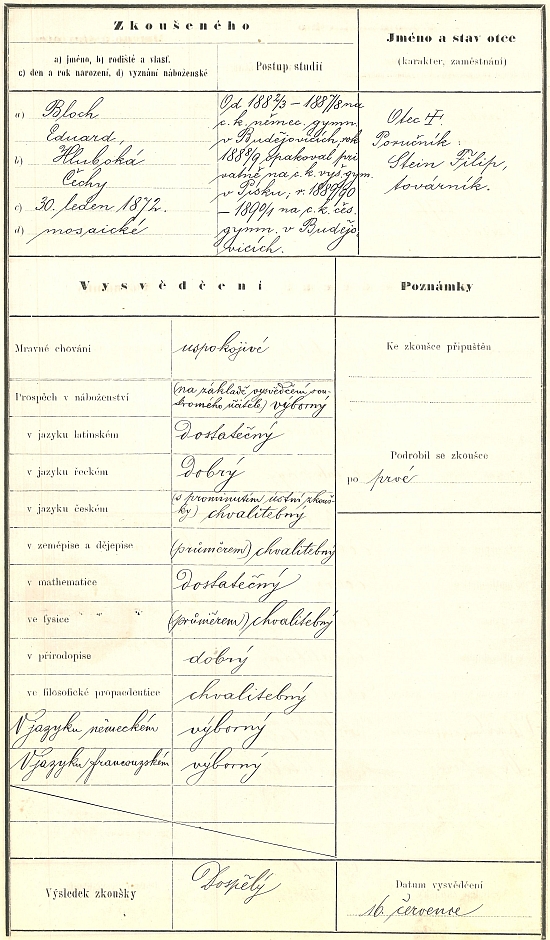 Zkoušeného
a) jméno, b) rodiště a vlasť.
c) den a rok narození, d) vyznání náboženské
Postup studií
Jméno a stav otce
(karakter, zaměstnání)
a) Bloch
Eduard,
b) Hluboká
Čechy
c) 30. leden 1872.
d) mosaické
Od 1882/3 – 1887/8 na
c. k. němec. gymn.
v Budějovicích; rok
1888/9 opakoval pri
vatně na c. k. vyš. gym.
v Písku; r. 1889/90
– 1890/1 na c. k. čes.
gymn. v Budějo
vicích.
Otec †.
Poručník:
Stein Filip,
továrník.
Vysvědčení
Poznámky
Mravné chování uspokojivé
Prospěch v náboženství (na základě vysvědčení sou-
kromého učitele) výborný
v jazyku latinském dostatečný
v jazyku řeckém dobrý
v jazyku českém (s prominutím ústní zkouš-
ky) chvalitebný
v zeměpise a dějepise (průměrem) chvalitebný
v mathematice dostatečný
ve fysice (průměrem) chvalitebný
v přírodopise dobrý
ve filosofické propaedeutice chvalitebný
V jazyku německém výborný
V jazyku francouzském výborný
Ke zkoušce připuštěn
Podrobil se zkoušce
po prvé
Výsledek zkoušky Dospělý
Datum vysvědčení
16. července